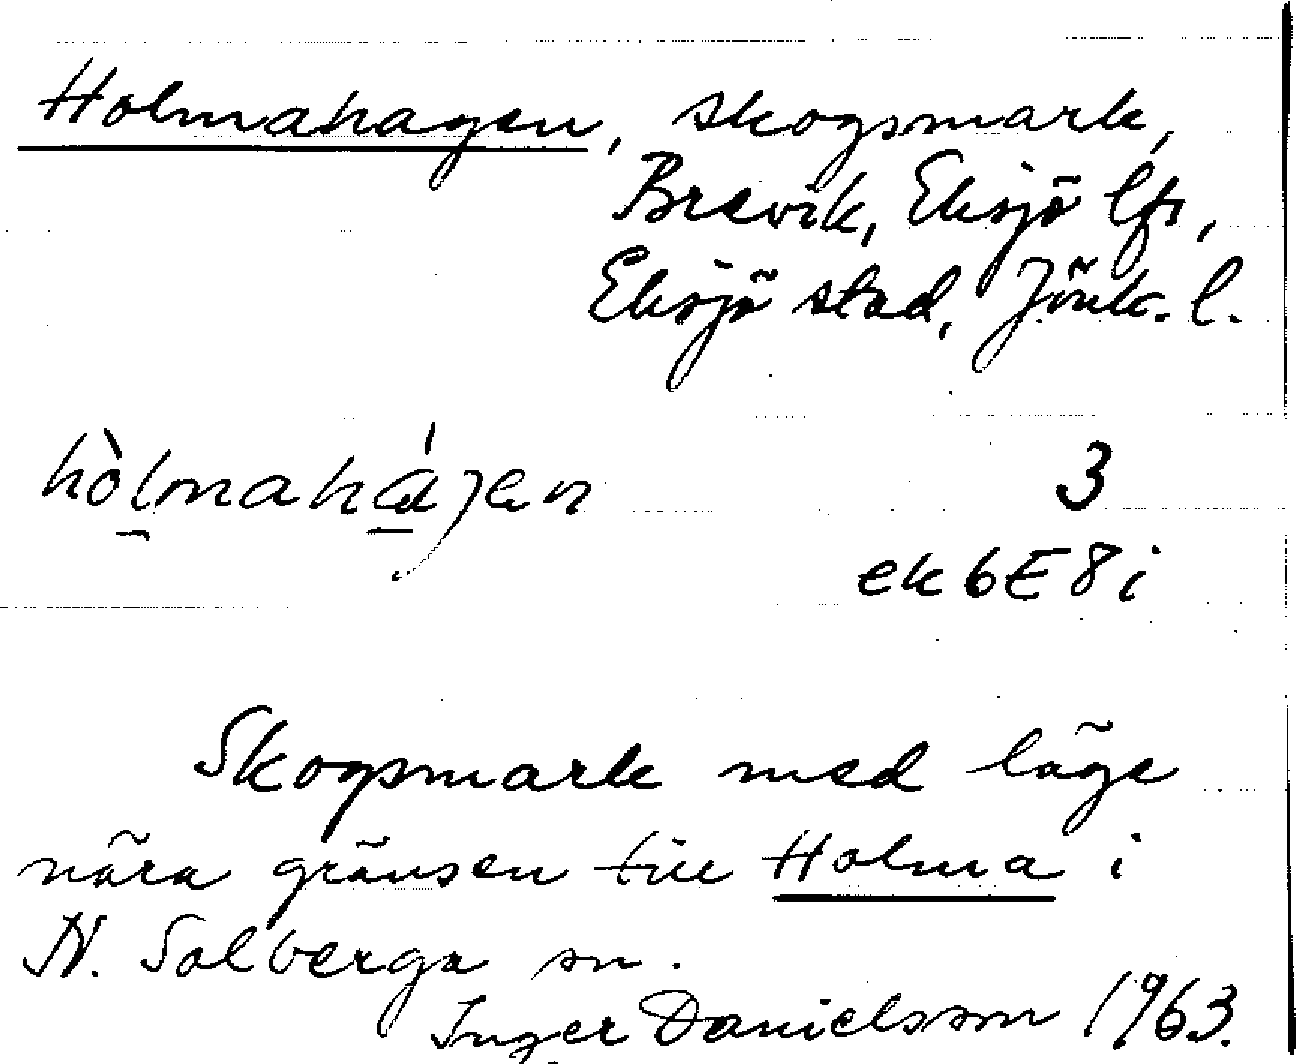 Holmahagen, skogsmark,
Brevik, Eksjö lfs,
Eksjö stad, Jönk. l.
hòlmahájen 3
ek 6E 8i
Skogsmark med läge
nära gränsen till Holma i
N. Solberga sn.
Inger Danielsson 1963.